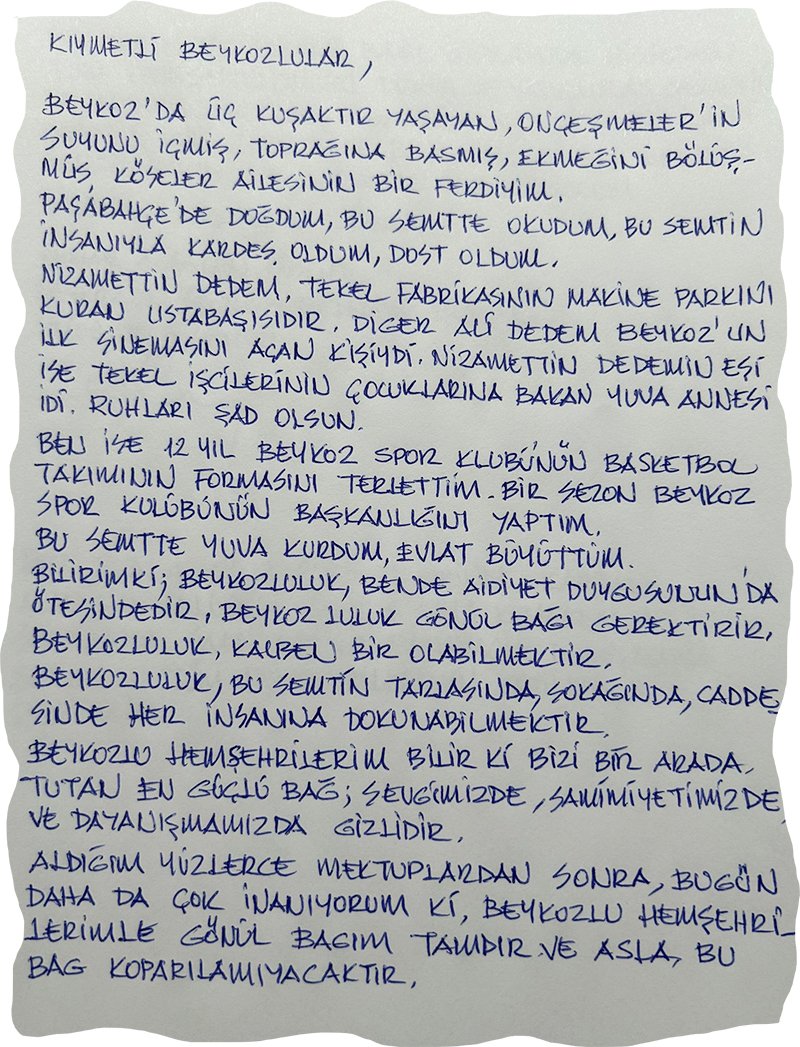 KIYMETLİ BEYKOZLULAR,
BEYKOZ'DA ÜÇ KUŞAKTIR YAŞAYAN, ONÇEŞMELER'İN
SUYUNU İÇMİŞ, TOPRAĞINA BASMIŞ, EKMEĞİNİ BÖLÜŞ-
MÜŞ, KÖSELER AİLESİNİN BİR FERDİYİM.
PAŞABAHÇE'DE DOĞDUM, BU SEMTTE OKUDUM, BU SEMTİN
İNSANIYLA KARDEŞ OLDUM, DOST OLDUM.
NİZAMETTİN DEDEM, TEKEL FABRİKASININ MAKİNE PARKINI
KURAN USTABAŞISIDIR. DİĞER ALİ DEDEM BEYKOZ'UN
İLK SİNEMASINI AÇAN KİŞİYDİ. NİZAMETTİN DEDEMİN EŞİ
İSE TEKEL İŞÇİLERİNİN ÇOCUKLARINA BAKAN YUVA ANNESİ
İDİ. RUHLARI ŞAD OLSUN.
BEN İSE 12 YIL BEYKOZ SPOR KLUBÜNÜN BASKETBOL
TAKIMININ FORMASINI TERLETTİM. BİR SEZON BEYKOZ
SPOR KULÜBÜNÜN BAŞKANLIĞINI YAPTIM.
BU SEMTTE YUVA KURDUM, EVLAT BÜYÜTTÜM.
BİLİRİMKİ; BEYKOZLULUK, BENDE AİDİYET DUYGUSUNUN'DA
ÖTESİNDEDİR. BEYKOZ LULUK GÖNÜL BAĞI GEREKTİRİR,
BEYKOZLULUK, KALBEN BİR OLABİLMEKTİR.
BEYKOZLULUK, BU SEMTİN TARLASINDA, SOKAĞINDA, CADDE-
SİNDE HER İNSANINA DOKUNABİLMEKTİR.
BEYKOZLU HEMŞEHRİLERİM BİLİR Kİ BİZİ BİR ARADA
TUTAN EN GÜÇLÜ BAĞ; SEVGİMİZDE, SAMİMİYETİMİZDE
VE DAYANIŞMAMIZDA GİZLİDİR.
ALDIĞIM YÜZLERCE MEKTUPLARDAN SONRA, BUGÜN
DAHA DA ÇOK İNANIYORUM Kİ, BEYKOZLU HEMŞEHRİ-
LERİMLE GÖNÜL BAGIM TAMDIR VE ASLA, BU
BAG KOPARILAMIYACAKTIR.